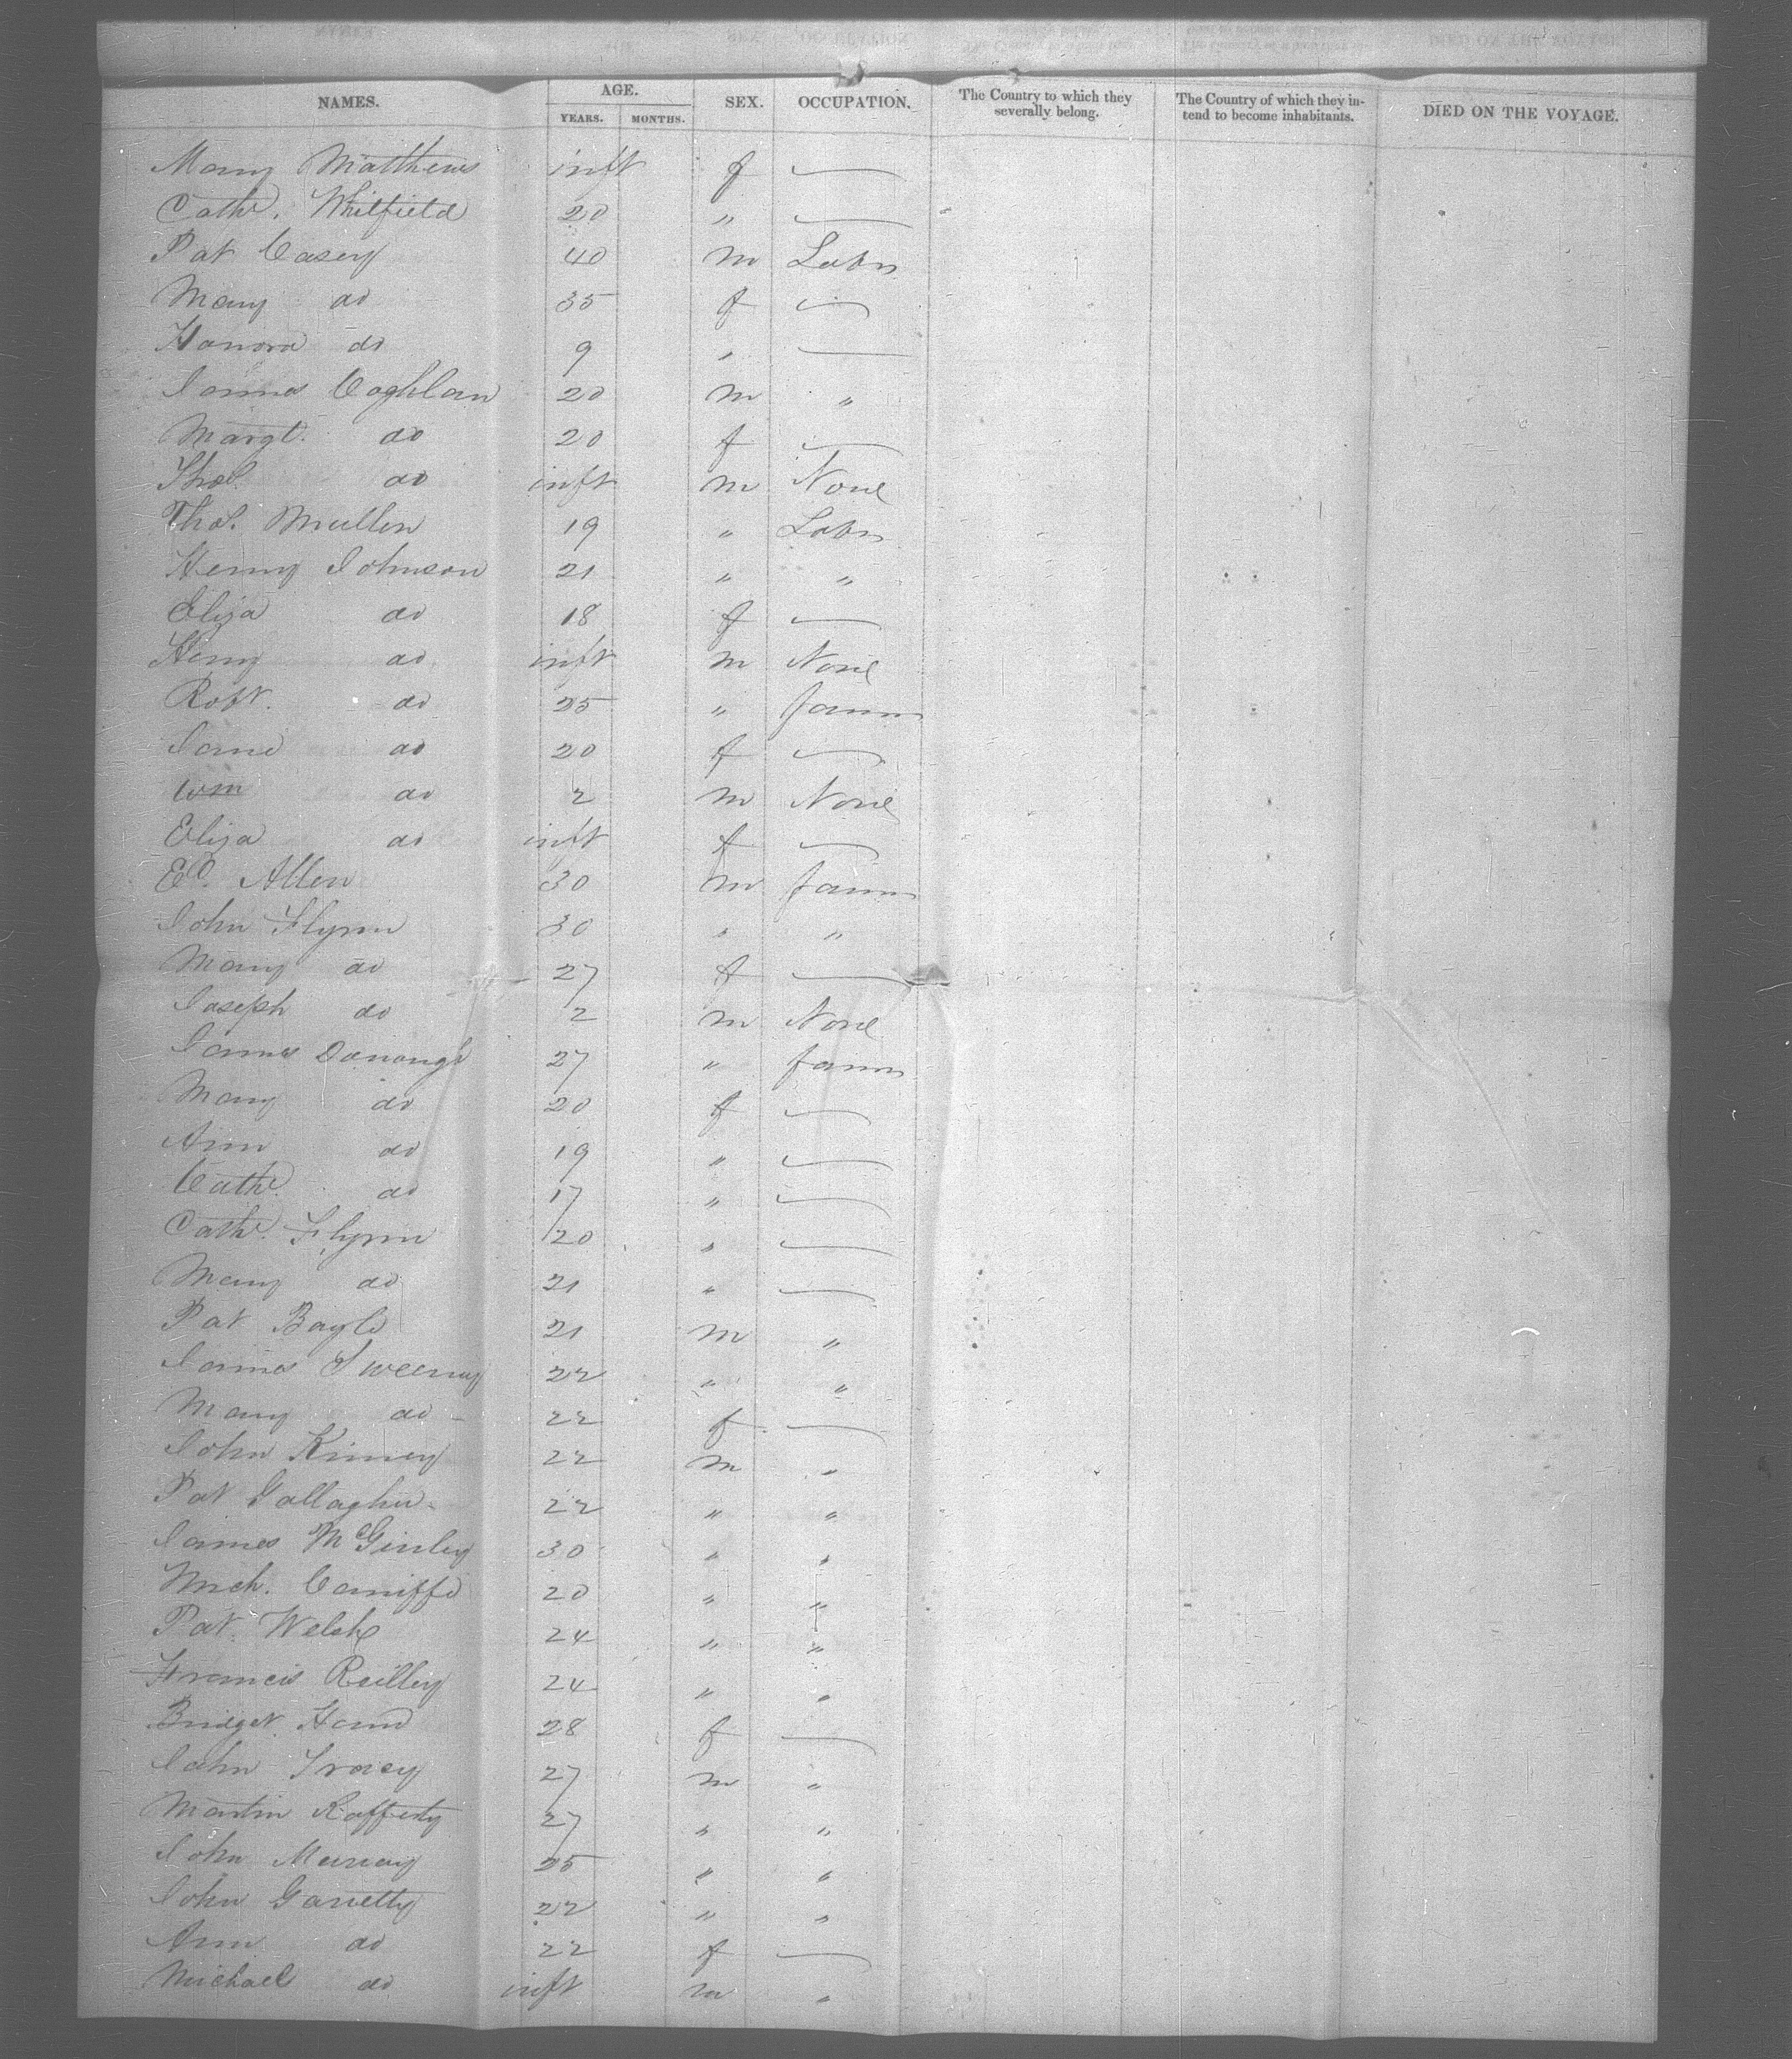 NAMES. AGE. SEX. OCCUPATION. The Country to which they severally belong. The Country of which they intend to become inhabitants. DIED ON THE VOYAGE.
YEARS. MONTHS.
Mary Matthews inft f —
Cathe. Whitfield 20 " —
Pat Casey 40 m Labr
Mary do 35 f —
Hanora do 9 " —
James Coghlan 20 m "
Margt. do 20 f —
Thos. do inft m None
Thos. Mullen 19 " Labr
Henry Johnson 21 " "
Eliza do 18 f —
Henry do inft m None
Robt. do 25 " farmr
Jane do 20 f —
Wm do 2 m None
Eliza do inft f —
Ed. Allen 30 m farmr
John Flynn 30 " "
Mary do 27 f —
Joseph do 2 m None
James Donough 27 " farmr
Mary do 20 f —
Ann do 19 " —
Cathe. do 17 " —
Cathe. Flynn 20 " —
Mary do 21 " —
Pat Boyle 21 m "
James Sweeney 22 " "
Mary do 22 f —
John Kinney 22 m "
Pat Gallagher 22 " "
James McGinley 30 " "
Mich. Canniffe 20 " "
Pat. Welsh 24 " "
Francis Reilley 24 " "
Bridget Hand 28 f —
John Tracey 27 m "
Martin Rafferty 27 " "
John Murray 25 " "
John Garretty 22 " "
Ann do 22 f —
Michael do inft m "